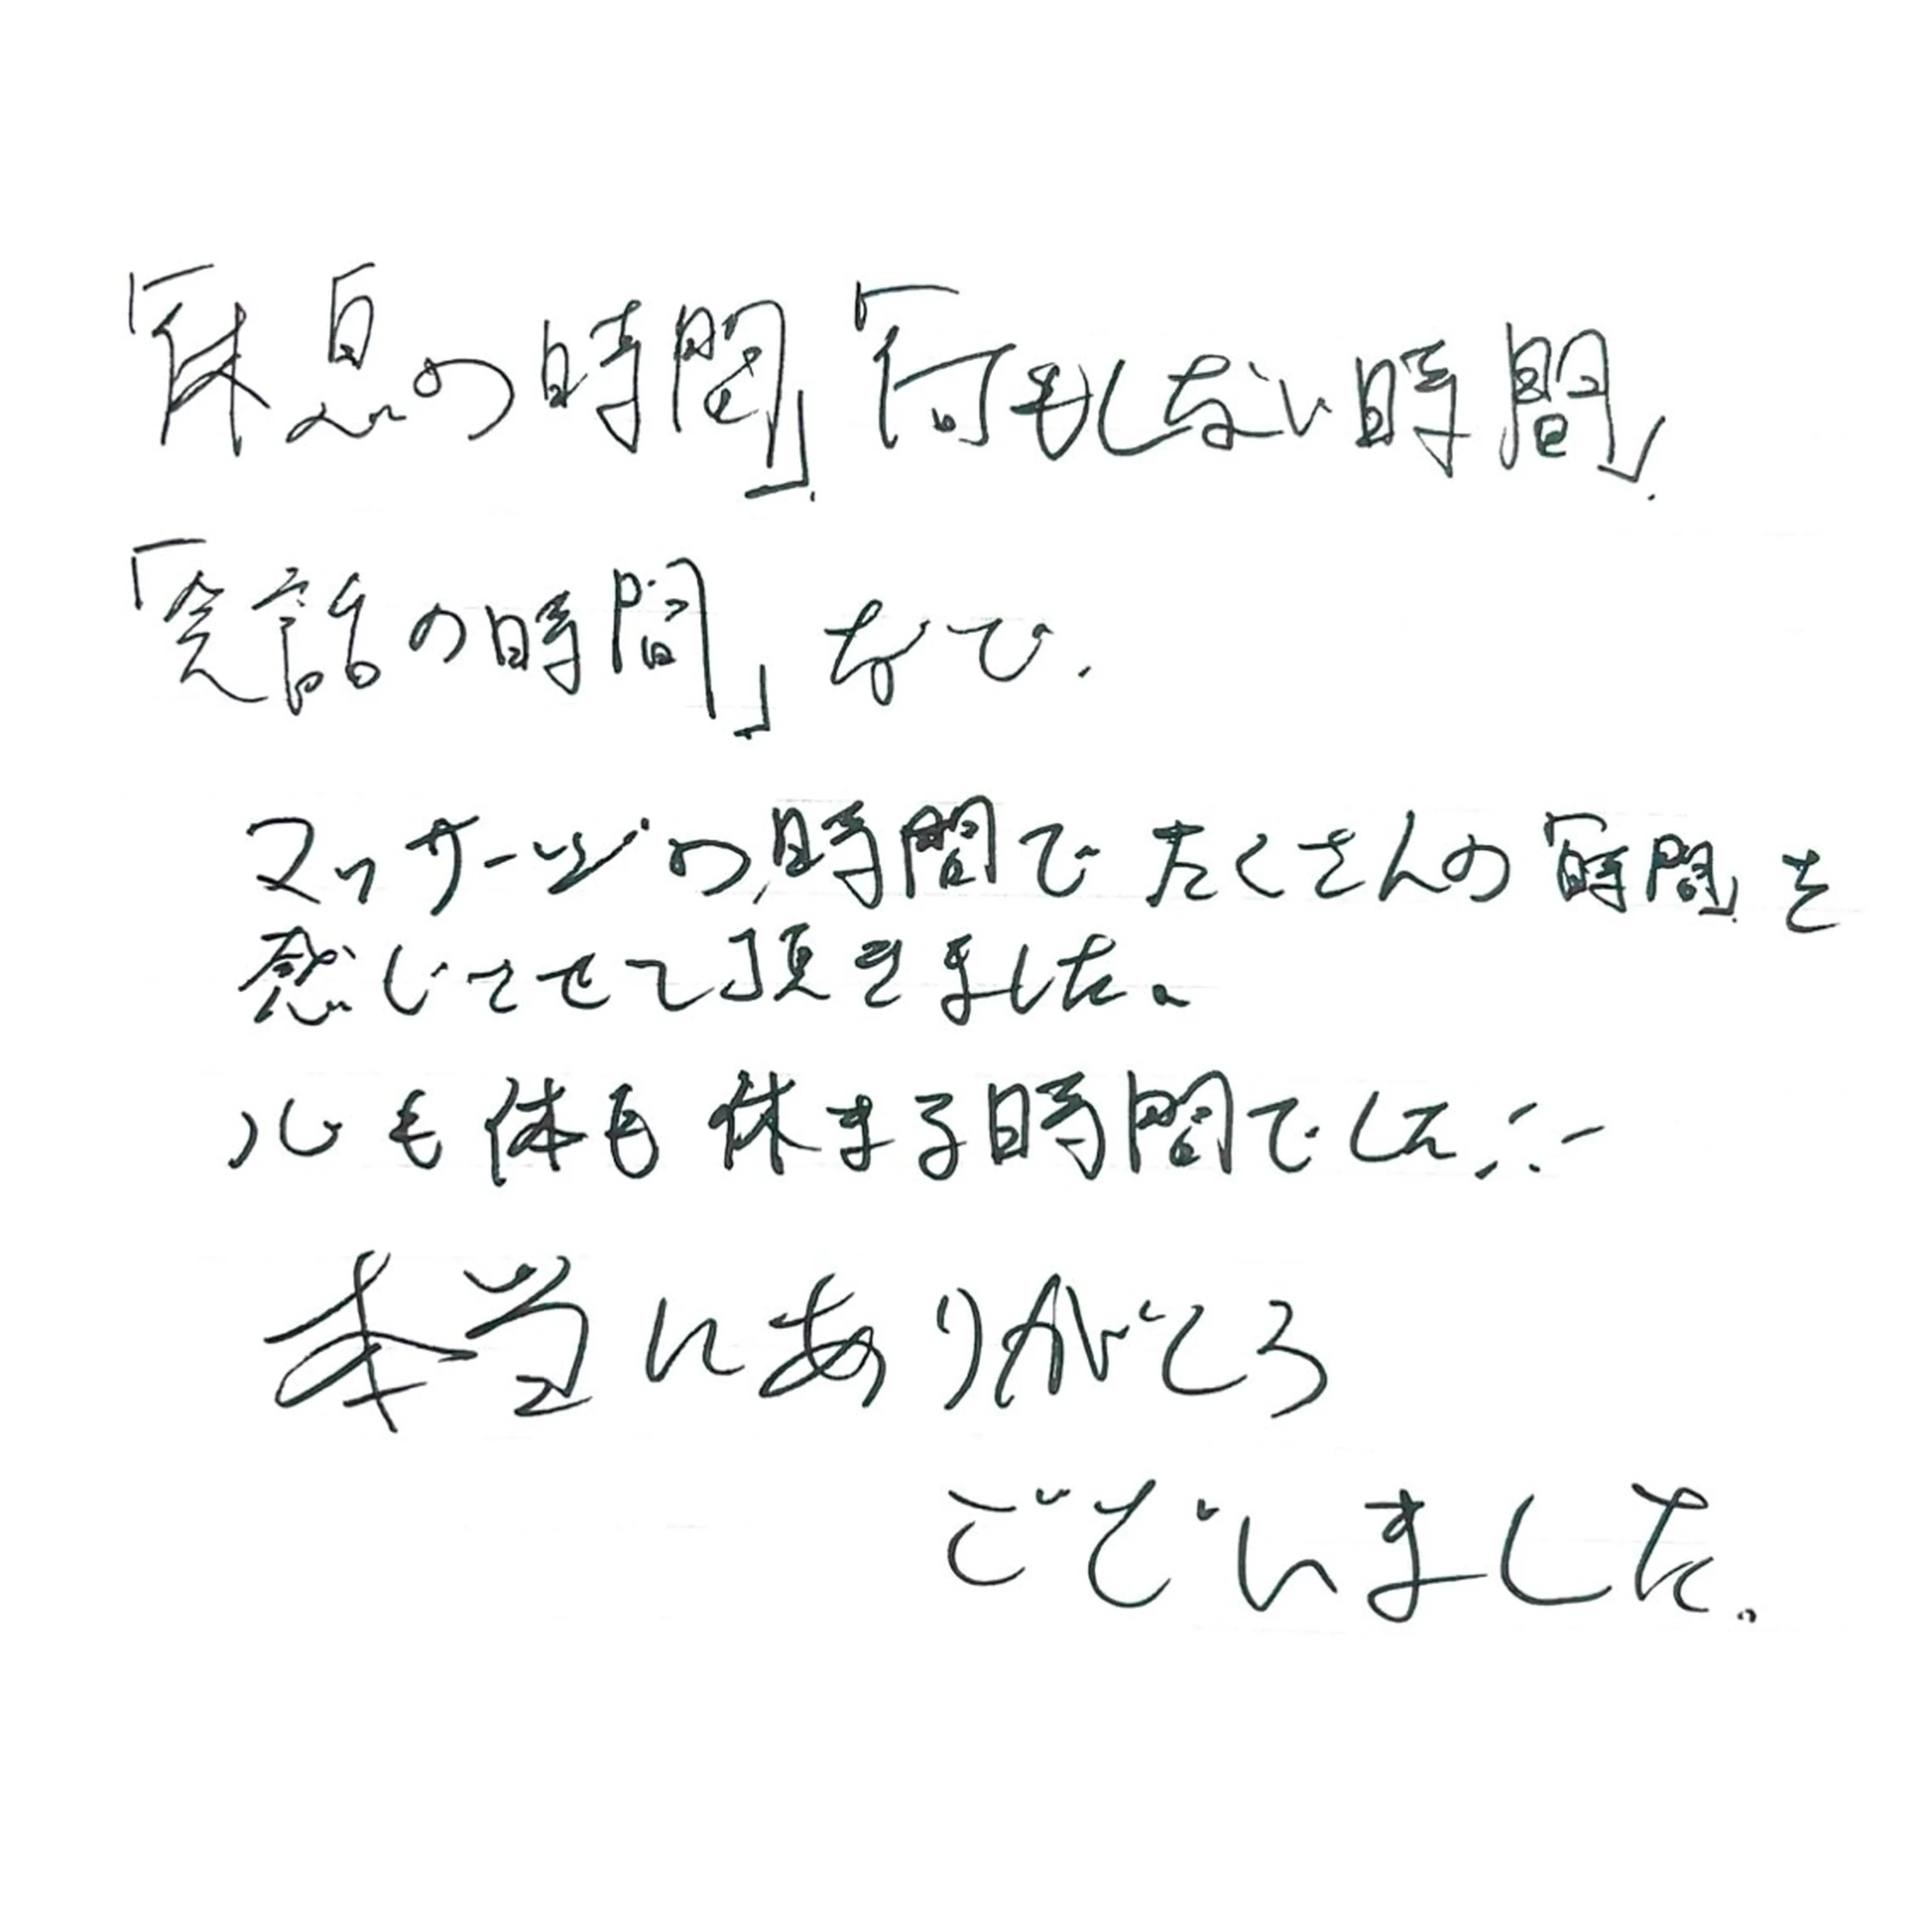 「休息の時間」、「何もしない時間」、
「会話の時間」など、
マッサージの時間でたくさんの「時間」を
感じさせて頂きました。
心も体も休まる時間でした
本当にありがとう
ございました。